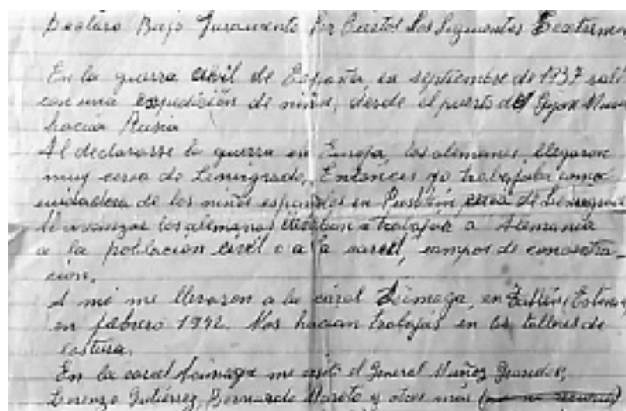 Declaro Bajo Juramento Ser Ciertos Los Siguientes Extremos
En la guerra civil de España en septiembre de 1937 salí
con una expedición de niños, desde el puerto de Gijon
hacia Rusia
Al declararse la guerra en Europa, los alemanes, llegaron
muy cerca de Leningrado, Entonces yo trabajaba como
cuidadora de los niños españoles en Pushkin cerca de Leningrado
Al avanzar los alemanes llevaban a trabajar a Alemania
a la poblacion civil o a la carcel, campos de concentra-
cion.
A mi me llevaron a la carcel en Tallin, Estonia
en febrero 1942. Nos hacian trabajar en los talleres de
costura.
En la carcel me visitó el General Muñoz Grandes,
Lorenzo Gutiérrez, Bernardo y otros más